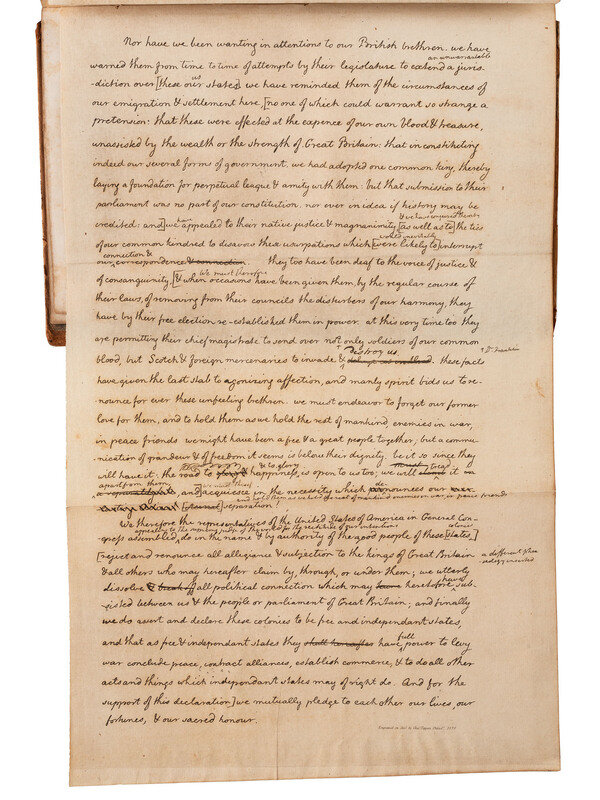 Nor have we been wanting in attentions to our British brethren. we have
an unwarrantable
warned them from time to time of attempts by their legislature to extend a juris-
us
diction over [these our states] we have reminded them of the circumstances of
our emigration & settlement here, [no one of which could warrant so strange a
pretension: that these were effected at the expence of our own blood & treasure,
unassisted by the wealth or the strength of Great Britain: that in constituting
indeed our several forms of government, we had adopted one common king, thereby
laying a foundation for perpetual league & amity with them: but that submission to their
parliament was no part of our constitution, nor ever in idea if history may be
have & we have conjured them by
credited: and] we appealed to their native justice & magnanimity [as well as to] the ties
would inevitably
of our common kindred to disavow these usurpations which [were likely to] interrupt
connection &
our correspondence & connection. they too have been deaf to the voice of justice &
We must therefore
of consanguinity, [& when occasions have been given them, by the regular course of
their laws, of removing from their councils the disturbers of our harmony, they
have by their free election re-established them in power. at this very time too they
are permitting their chief magistrate to send over not only soldiers of our common
destroy us
blood, but Scotch & foreign mercenaries to invade & . these facts
Dr. Franklin
have given the last stab to agonizing affection, and manly spirit bids us to re-
nounce for ever these unfeeling brethren. we must endeavor to forget our former
love for them, and to hold them as we hold the rest of mankind, enemies in war,
in peace friends. we might have been a free & a great people together; but a commu-
nication of grandeur & of freedom it seems is below their dignity. be it so since they
& to glory
will have it: the road to happiness, is open to us too; we will it
apart from them
and acquiesce in the necessity which denounces our
and hold them as we hold the rest of mankind enemies in war in peace friends
[eternal] separation!
We therefore the representatives of the United States of America in General Con-
appealing to the supreme judge of the world for the rectitude of our intentions
gress assembled, do in the name & by authority of the good people of these [states,]
colonies
[reject and renounce all allegiance & subjection to the kings of Great Britain
a different phraseology inserted
& all others who may hereafter claim by, through, or under them; we utterly
dissolve & break off all political connection which may have heretofore sub-
sisted between us & the people or parliament of Great Britain; and finally
we do assert and declare these colonies to be free and independant states,
and that as free & independant states they shall hereafter have full power to levy
war conclude peace, contract alliances, establish commerce, & to do all other
acts and things which independant states may of right do. And for the
support of this declaration] we mutually pledge to each other our lives, our
fortunes, & our sacred honour.